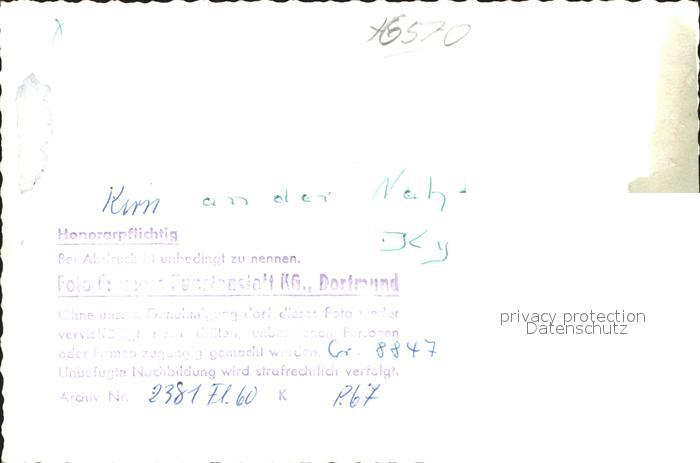 16570
Kirn an der Nahe
Ky
Honorarpflichtig
Bei Abdruck ist unbedingt zu nennen.
Foto Cramers Kunstanstalt KG., Dortmund
Ohne unsere Genehmigung darf dieses Foto weder
vervielfältigt noch dritten, unberufenen Personen
oder Firmen zugängig gemacht werden. Cr. 8847
Unbefugte Nachbildung wird strafrechtlich verfolgt.
Archiv Nr. 2381 Fl. 60 K P.67
privacy protection
Datenschutz